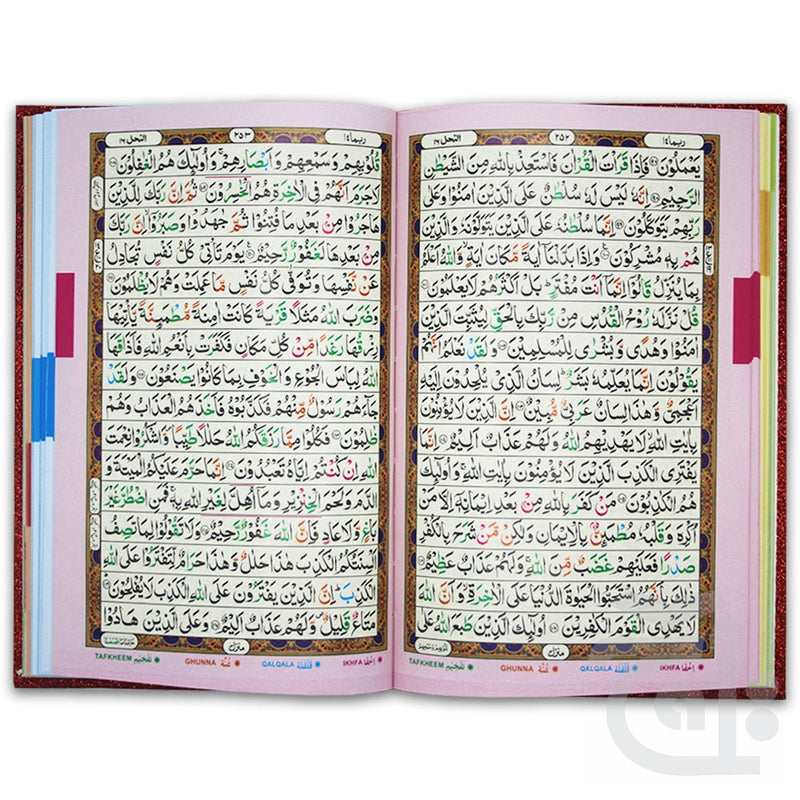 ربما ١٤ ٢٥٢ النحل ١٦
يَعْمَلُوْنَ ۝٩٧ فَاِذَا قَرَاْتَ الْقُرْاٰنَ فَاسْتَعِذْ بِاللّٰهِ مِنَ الشَّيْطٰنِ
الرَّجِيْمِ ۝٩٨ اِنَّهٗ لَيْسَ لَهٗ سُلْطٰنٌ عَلَى الَّذِيْنَ اٰمَنُوْا وَعَلٰى
رَبِّهِمْ يَتَوَكَّلُوْنَ ۝٩٩ اِنَّمَا سُلْطٰنُهٗ عَلَى الَّذِيْنَ يَتَوَلَّوْنَهٗ وَالَّذِيْنَ
هُمْ بِهٖ مُشْرِكُوْنَ ۝١٠٠ وَاِذَا بَدَّلْنَاۤ اٰيَةً مَّكَانَ اٰيَةٍ وَّاللّٰهُ اَعْلَمُ
بِمَا يُنَزِّلُ قَالُوْۤا اِنَّمَاۤ اَنْتَ مُفْتَرٍ بَلْ اَكْثَرُهُمْ لَا يَعْلَمُوْنَ ۝١٠١
قُلْ نَزَّلَهٗ رُوْحُ الْقُدُسِ مِنْ رَّبِّكَ بِالْحَقِّ لِيُثَبِّتَ الَّذِيْنَ
اٰمَنُوْا وَهُدًى وَّبُشْرٰى لِلْمُسْلِمِيْنَ ۝١٠٢ وَلَقَدْ نَعْلَمُ اَنَّهُمْ
يَقُوْلُوْنَ اِنَّمَا يُعَلِّمُهٗ بَشَرٌ لِسَانُ الَّذِيْ يُلْحِدُوْنَ اِلَيْهِ
اَعْجَمِيٌّ وَّهٰذَا لِسَانٌ عَرَبِيٌّ مُّبِيْنٌ ۝١٠٣ اِنَّ الَّذِيْنَ لَا يُؤْمِنُوْنَ
بِاٰيٰتِ اللّٰهِ لَا يَهْدِيْهِمُ اللّٰهُ وَلَهُمْ عَذَابٌ اَلِيْمٌ ۝١٠٤ اِنَّمَا
يَفْتَرِى الْكَذِبَ الَّذِيْنَ لَا يُؤْمِنُوْنَ بِاٰيٰتِ اللّٰهِ وَاُولٰٓئِكَ
هُمُ الْكٰذِبُوْنَ ۝١٠٥ مَنْ كَفَرَ بِاللّٰهِ مِنْۢ بَعْدِ اِيْمَانِهٖۤ اِلَّا مَنْ
اُكْرِهَ وَقَلْبُهٗ مُطْمَئِنٌّۢ بِالْاِيْمَانِ وَلٰكِنْ مَّنْ شَرَحَ بِالْكُفْرِ
صَدْرًا فَعَلَيْهِمْ غَضَبٌ مِّنَ اللّٰهِ وَلَهُمْ عَذَابٌ عَظِيْمٌ ۝١٠٦
ذٰلِكَ بِاَنَّهُمُ اسْتَحَبُّوا الْحَيٰوةَ الدُّنْيَا عَلَى الْاٰخِرَةِ وَاَنَّ اللّٰهَ
لَا يَهْدِى الْقَوْمَ الْكٰفِرِيْنَ ۝١٠٧ اُولٰٓئِكَ الَّذِيْنَ طَبَعَ اللّٰهُ عَلٰى
منزل ٣
IKHFA اِخْفَا QALQALA قَلْقَلَهْ GHUNNA غُنَّهْ TAFKHEEM تَفْخِيْم
ربما ١٤ ٢٥٣ النحل ١٦
قُلُوْبِهِمْ وَسَمْعِهِمْ وَاَبْصَارِهِمْ وَاُولٰٓئِكَ هُمُ الْغٰفِلُوْنَ ۝١٠٨
لَا جَرَمَ اَنَّهُمْ فِى الْاٰخِرَةِ هُمُ الْخٰسِرُوْنَ ۝١٠٩ ثُمَّ اِنَّ رَبَّكَ لِلَّذِيْنَ
هَاجَرُوْا مِنْۢ بَعْدِ مَا فُتِنُوْا ثُمَّ جٰهَدُوْا وَصَبَرُوْۤا اِنَّ رَبَّكَ
مِنْۢ بَعْدِهَا لَغَفُوْرٌ رَّحِيْمٌ ۝١١٠ يَوْمَ تَاْتِيْ كُلُّ نَفْسٍ تُجَادِلُ
عَنْ نَّفْسِهَا وَتُوَفّٰى كُلُّ نَفْسٍ مَّا عَمِلَتْ وَهُمْ لَا يُظْلَمُوْنَ ۝١١١
وَضَرَبَ اللّٰهُ مَثَلًا قَرْيَةً كَانَتْ اٰمِنَةً مُّطْمَئِنَّةً يَّاْتِيْهَا
رِزْقُهَا رَغَدًا مِّنْ كُلِّ مَكَانٍ فَكَفَرَتْ بِاَنْعُمِ اللّٰهِ فَاَذَاقَهَا
اللّٰهُ لِبَاسَ الْجُوْعِ وَالْخَوْفِ بِمَا كَانُوْا يَصْنَعُوْنَ ۝١١٢ وَلَقَدْ
جَآءَهُمْ رَسُوْلٌ مِّنْهُمْ فَكَذَّبُوْهُ فَاَخَذَهُمُ الْعَذَابُ وَهُمْ
ظٰلِمُوْنَ ۝١١٣ فَكُلُوْا مِمَّا رَزَقَكُمُ اللّٰهُ حَلٰلًا طَيِّبًا وَّاشْكُرُوْا نِعْمَتَ
اللّٰهِ اِنْ كُنْتُمْ اِيَّاهُ تَعْبُدُوْنَ ۝١١٤ اِنَّمَا حَرَّمَ عَلَيْكُمُ الْمَيْتَةَ وَ
الدَّمَ وَلَحْمَ الْخِنْزِيْرِ وَمَاۤ اُهِلَّ لِغَيْرِ اللّٰهِ بِهٖ فَمَنِ اضْطُرَّ غَيْرَ
بَاغٍ وَّلَا عَادٍ فَاِنَّ اللّٰهَ غَفُوْرٌ رَّحِيْمٌ ۝١١٥ وَلَا تَقُوْلُوْا لِمَا تَصِفُ
اَلْسِنَتُكُمُ الْكَذِبَ هٰذَا حَلٰلٌ وَّهٰذَا حَرَامٌ لِّتَفْتَرُوْا عَلَى اللّٰهِ
الْكَذِبَ اِنَّ الَّذِيْنَ يَفْتَرُوْنَ عَلَى اللّٰهِ الْكَذِبَ لَا يُفْلِحُوْنَ ۝١١٦
مَتَاعٌ قَلِيْلٌ وَّلَهُمْ عَذَابٌ اَلِيْمٌ ۝١١٧ وَعَلَى الَّذِيْنَ هَادُوْا
منزل ٣
IKHFA اِخْفَا QALQALA قَلْقَلَهْ GHUNNA غُنَّهْ TAFKHEEM تَفْخِيْم